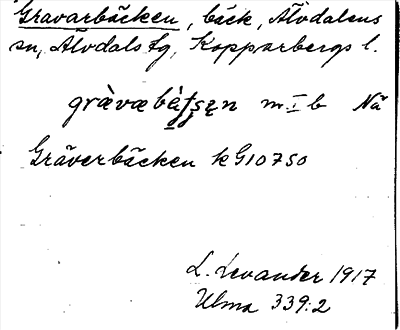 Gravarbäcken, bäck, Älvdalens
sn, Älvdals tg, Kopparbergs l.
m I b Nä
Gräverbäcken kG10750
L. Levander 1917
Ulma 339:2